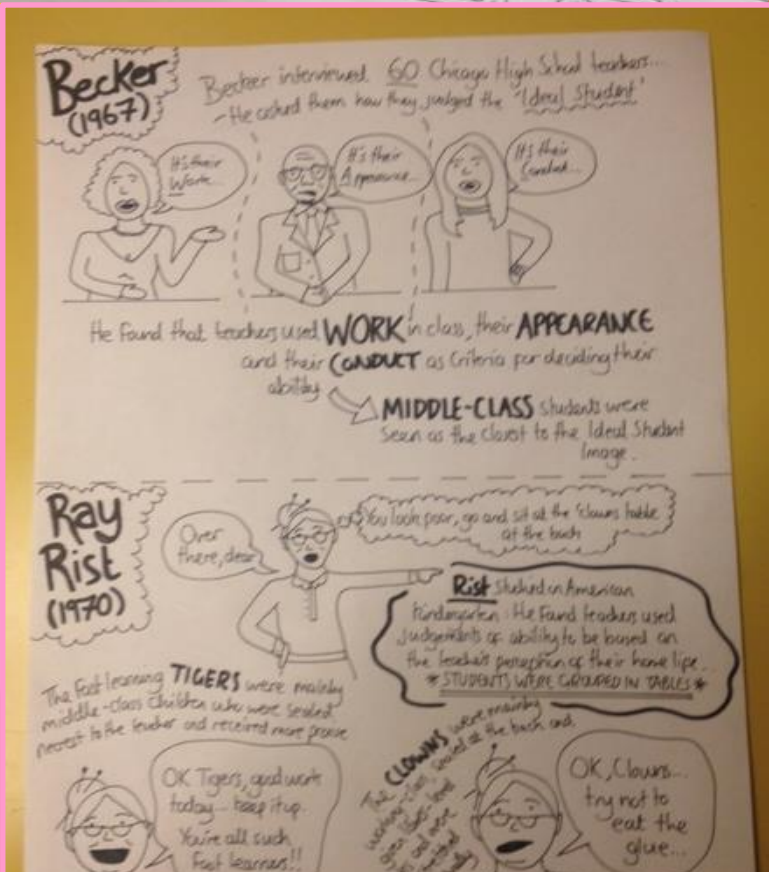 Becker
(1967)
Becker interviewed 60 Chicago High School teachers...
- He asked them how they judged the "Ideal Student"
It's their
Work...
It's their
Appearance...
It's their
Conduct...
He found that teachers used WORK in class, their APPEARANCE
and their CONDUCT as Criteria for deciding their
ability
MIDDLE-CLASS Students were
Seen as the closest to the Ideal Student
Image.
Ray
Rist
(1970)
Over
there, dear
You look poor, go and sit at the 'Clowns' table
at the back
Rist studied an American
Kindergarten: He found teachers used
Judgements of ability to be based on
the teacher's perception of their home life.
*STUDENTS WERE GROUPED IN TABLES*
The fast learning TIGERS were mainly
middle-class children who were seated
nearest to the teacher and received more praise
OK Tigers, good work
today... keep it up.
You're all such
Fast learners!!
The CLOWNS were mainly
working-class, seated at the back and
given lower-level
OK, Clowns...
try not to
eat the
glue...